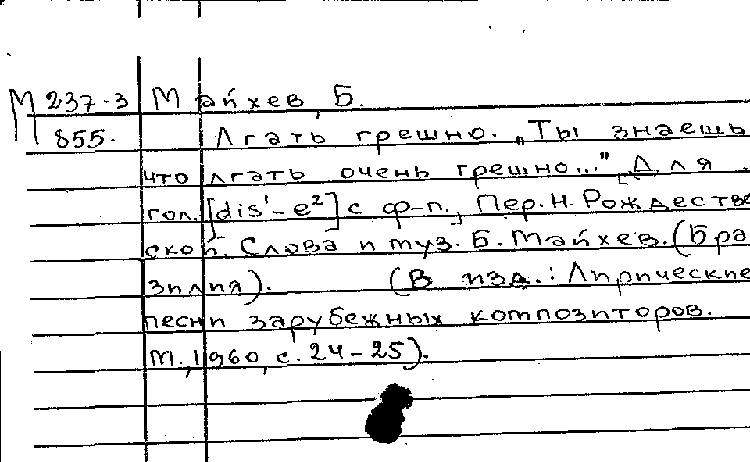 М 237-3 Майхев, Б.
855. Лгать грешно. „Ты знаешь
что лгать очень грешно..." Для
гол. [dis¹-e²] с ф-п., Пер. Н. Рождестве
ской. Слова и муз. Б. Майхев. (Бра
зилия). (В изд.: Лирические
песни зарубежных композиторов.
М., 1960, с. 24-25).